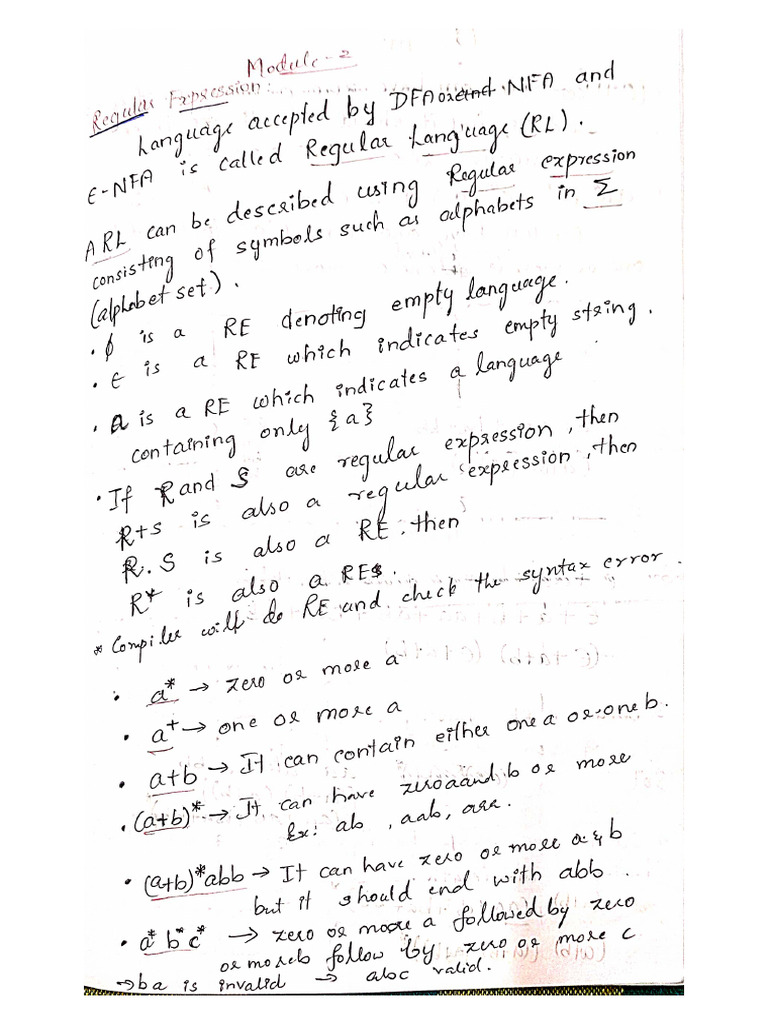 Module-2
Regular Expression:
Language accepted by DFA or and NFA and
ε-NFA is called Regular Language (RL).
A RL can be described using Regular expression
consisting of symbols such as alphabets in Σ
(alphabet set).
• ϕ is a RE denoting empty language.
• ε is a RE which indicates empty string.
• a is a RE which indicates a language
containing only {a}
• If R and S are regular expression, then
R+S is also a regular expression, then
R.S is also a RE, then
R* is also a RE.
* Compiler will do RE and check the syntax error.
• a* → zero or more a
• a⁺ → one or more a
• a+b → It can contain either one a or one b.
• (a+b)* → It can have zero a and b or more
Ex: ab, aab,
• (a+b)*abb → It can have zero or more a & b
but it should end with abb.
• a* b* c* → zero or more a followed by zero
or more b follow by zero or more c
→ ba is invalid → abc valid.